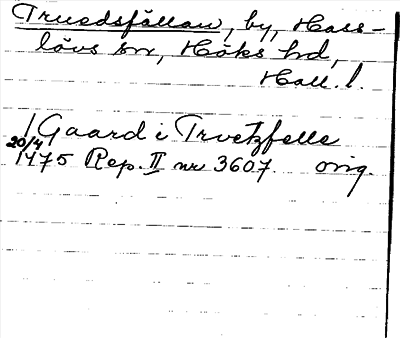 Truedsfällan, by, Hass-
lövs sn, Höks hd,
Hall. l.
1 Gaard i Trvetzfelle
20/4
1475 Rep. II nr 3607. orig.